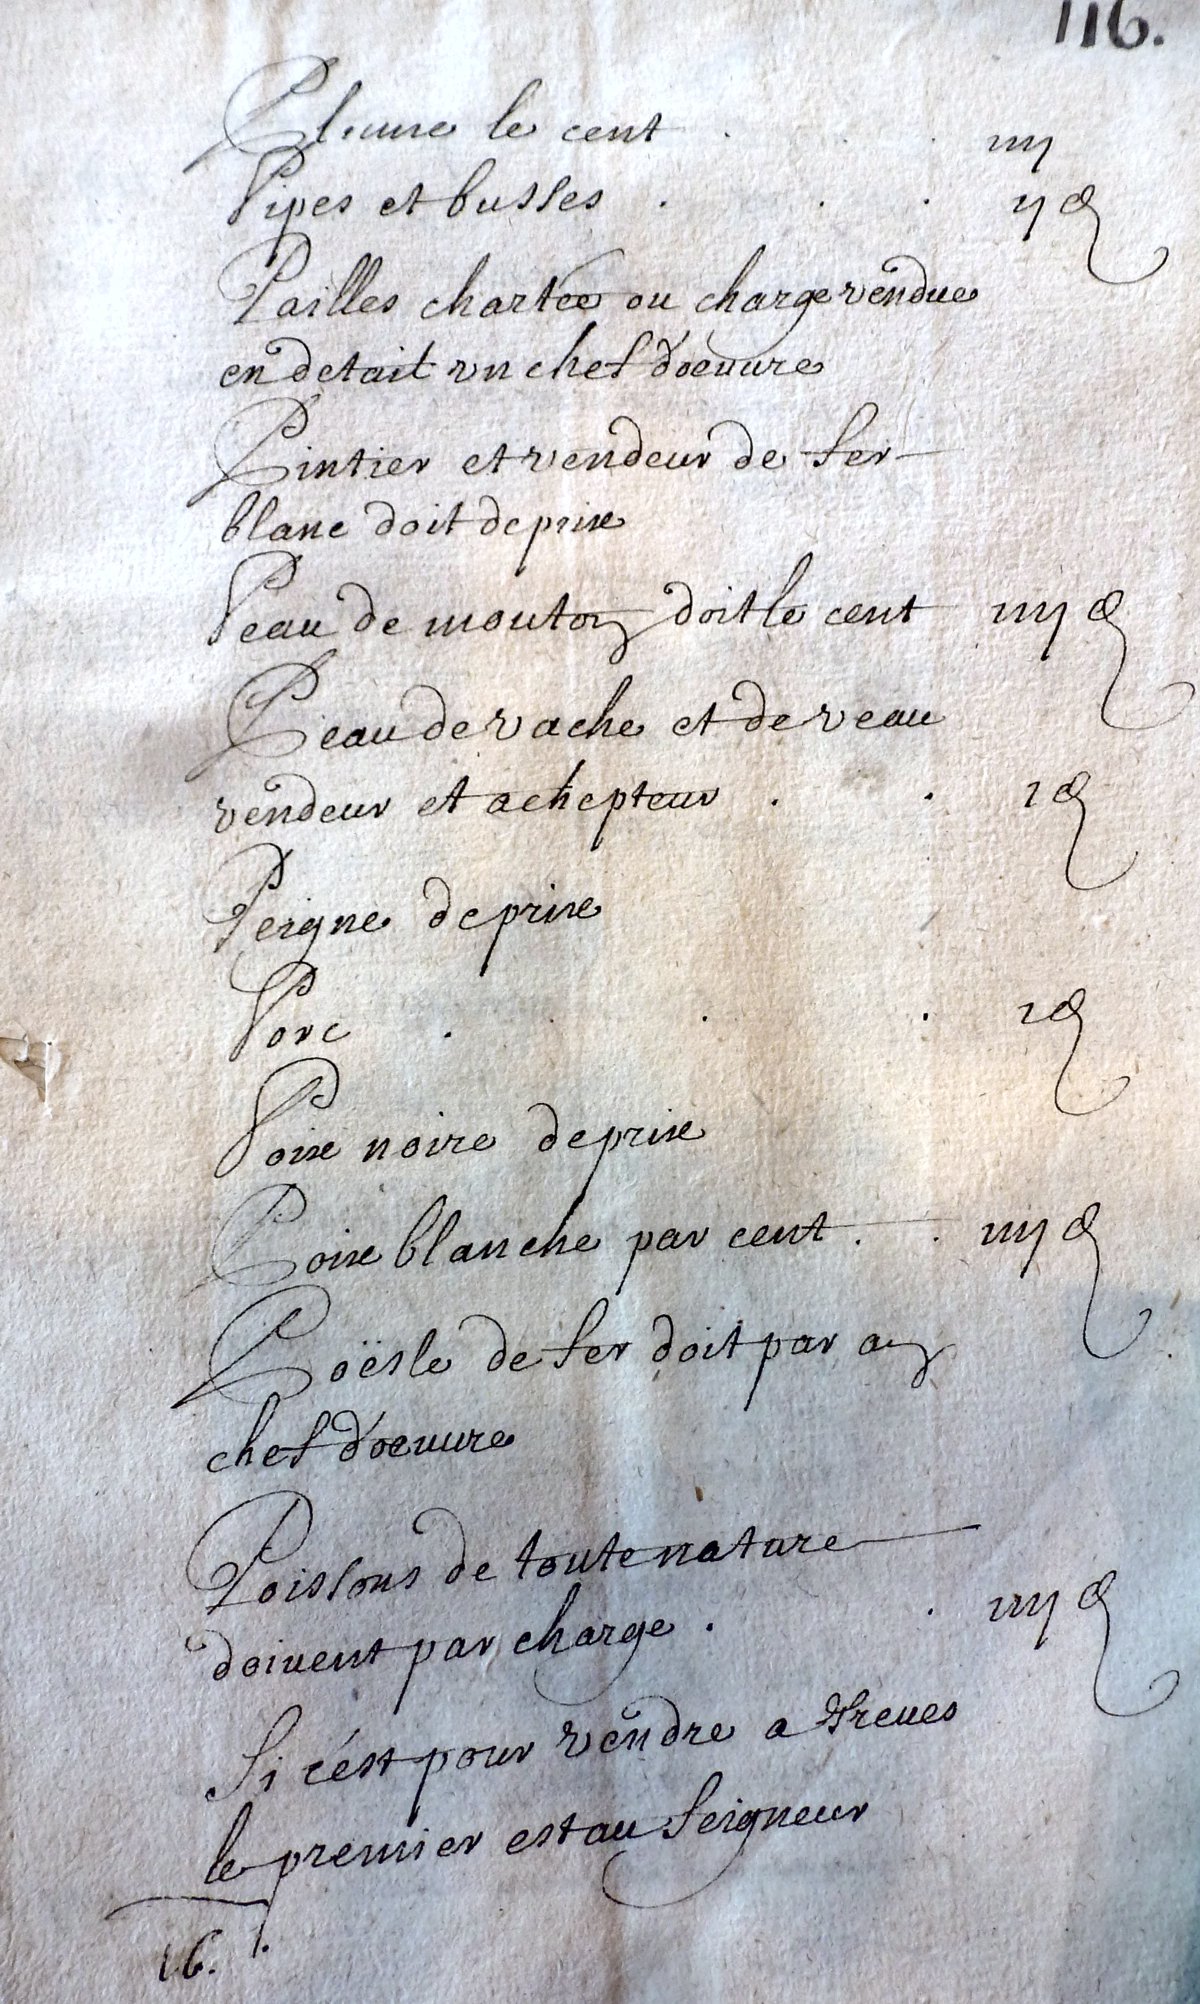 116.
Plume le cent . . iiij
Pipes et busses . . . ij d
Pailles chartée ou charge vendue
en detail un chef d'oeuure
Pintier et vendeur de fer
blanc doit de prise
Peau de mouton doit le cent iiij d
Peau de vache et de veau
vendeur et achepteur . . 1 d
Peigne de prise
Porc . . . . 1 d
Poix noire de prise
Poix blanche par cent . . iiij d
Poësle de fer doit par an
chef d'oeuure
Poissons de toute nature
doiuent par charge . . iiij d
Si c'est pour vendre a Treues
le premier est au seigneur
16.